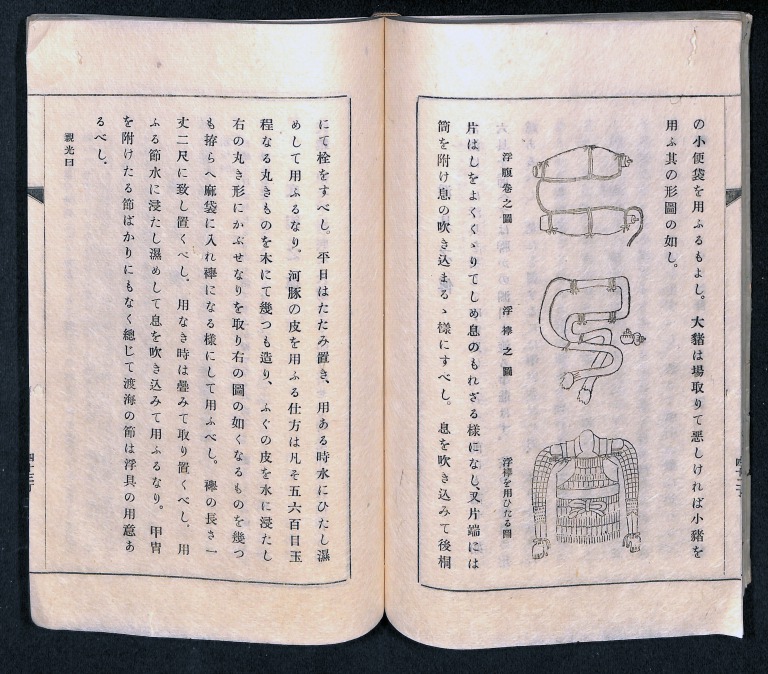 の小便袋を用ふるもよし。大豬は場取りて悪しければ小豬を
用ふ其の形圖の如し。
浮腹卷之圖
浮襷之圖
浮襷を用ひたる圖
片はしをよくくゝりてしめ息のもれざる様になし、又片端には
筒を附け息の吹き込まるゝ様にすべし。息を吹き込みて後桐
にて栓をすべし。平日はたたみ置き、用ある時水にひたし濕
めして用ふるなり。河豚の皮を用ふる仕方は凡そ五六百目玉
程なる丸きものを木にて幾つも造り、ふぐの皮を水に浸たし
右の丸き形にかぶせなりを取り右の圖の如くなるものを幾つ
も拵らへ麻袋に入れ襷になる様にして用ふべし。襷の長さ一
丈二尺に致し置くべし、用なき時は疊みて取り置くべし、用
ふる節水に浸たし濕めして息を吹き込みて用ふるなり。甲冑
を附けたる節ばかりにもなく總じて渡海の節は浮具の用意あ
るべし。
親光曰